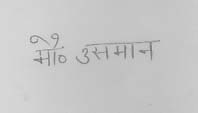 मो० उसमान